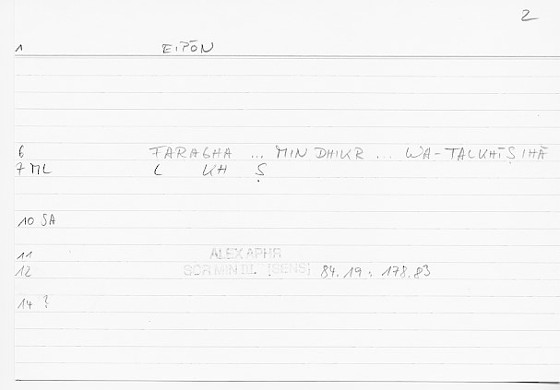 2
1 EIPŌN
6 FARAGHA ... MIN DHIKR ... WA-TALKHĪṢIHĀ
7 ML L KH Ṣ
10 SA
11 ALEXAPHR
12 SCRMIN III. [SENS] 84.19 : 178.83
14 ?